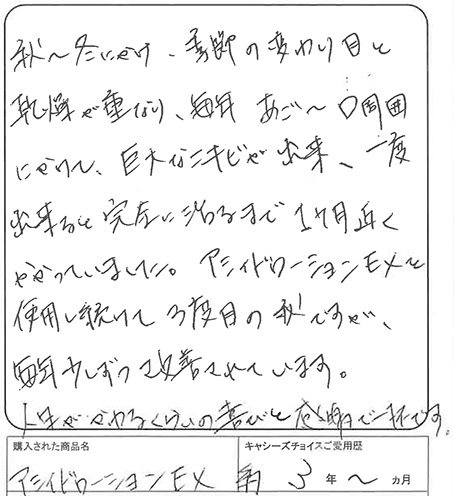 秋〜冬にかけ、季節の変わり目と
乾燥が重なり、毎年 あご〜口周囲
にかけて、巨大なニキビが出来、一度
出来ると完全に治るまで1ヶ月近く
かかっていました。アシィドローションEXを
使用し続けて3度目の秋ですが、
毎年少しずつ改善されています。
人生がかわるくらいの喜びと感謝で一杯です。
購入された商品名 キャシーズチョイスご愛用歴
アシィドローションEX 約 3 年 〜 ヵ月